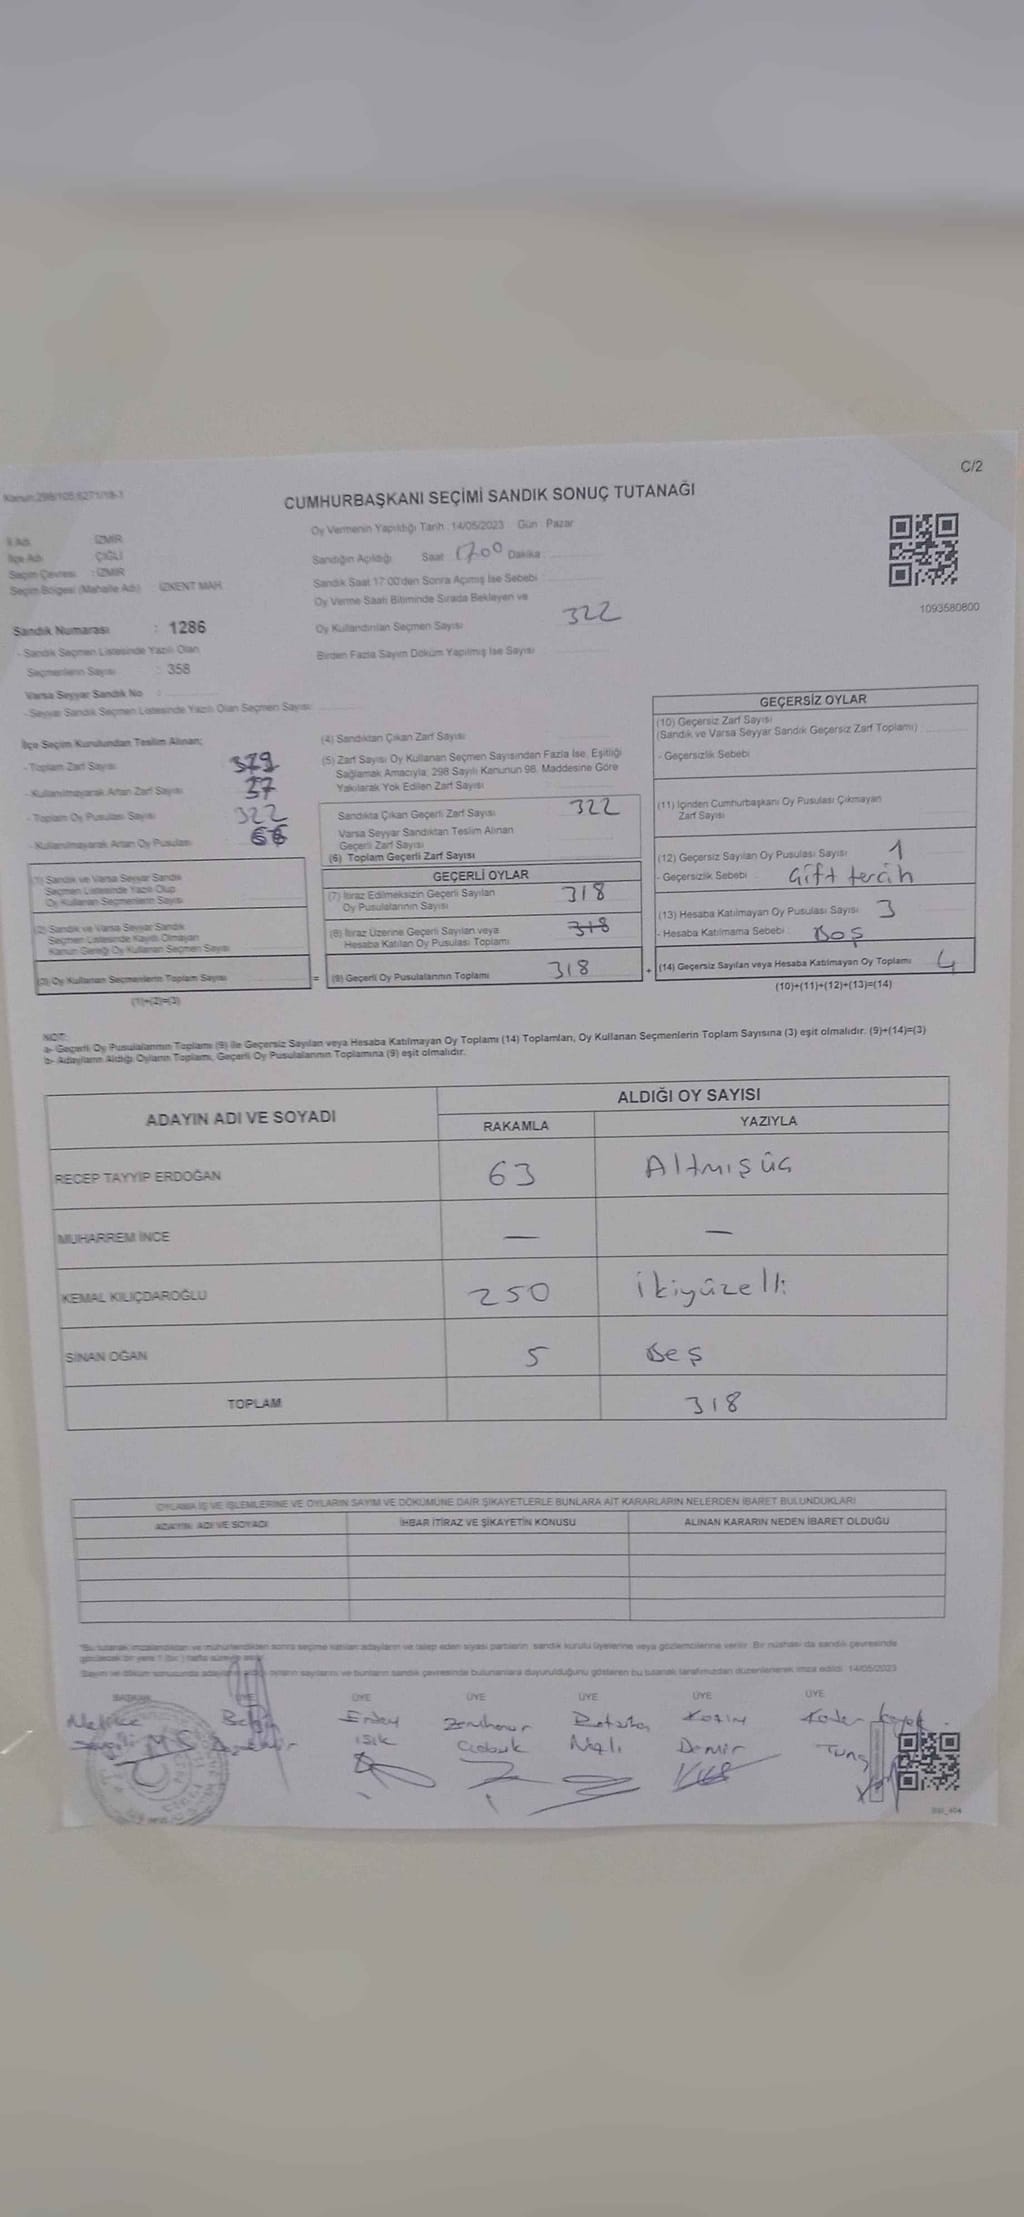 C/2
Kanun:298/105,6271/18-1
CUMHURBAŞKANI SEÇİMİ SANDIK SONUÇ TUTANAĞI
Oy Vermenin Yapıldığı Tarih: 14/05/2023 Gün: Pazar
İl Adı İZMİR
İlçe Adı ÇİĞLİ
Seçim Çevresi : İZMİR
Seçim Bölgesi (Mahalle Adı) İZKENT MAH.
Sandığın Açıldığı Saat 1700 Dakika
Sandık Saat 17:00'den Sonra Açılmış İse Sebebi
Oy Verme Saati Bitiminde Sırada Bekleyen ve
Oy Kullandırılan Seçmen Sayısı 322
Birden Fazla Sayım Döküm Yapılmış İse Sayısı
1093580800
Sandık Numarası : 1286
- Sandık Seçmen Listesinde Yazılı Olan
Seçmenlerin Sayısı : 358
Varsa Seyyar Sandık No :
- Seyyar Sandık Seçmen Listesinde Yazılı Olan Seçmen Sayısı:
İlçe Seçim Kurulundan Teslim Alınan;
- Toplam Zarf Sayısı
- Kullanılmayarak Artan Zarf Sayısı 37
- Toplam Oy Pusulası Sayısı 322
- Kullanılmayarak Artan Oy Pusulası
(1) Sandık ve Varsa Seyyar Sandık
Seçmen Listesinde Yazılı Olup
Oy Kullanan Seçmenlerin Sayısı
(2) Sandık ve Varsa Seyyar Sandık
Seçmen Listesinde Kayıtlı Olmayan
Kanun Gereği Oy Kullanan Seçmen Sayısı
(3) Oy Kullanan Seçmenlerin Toplam Sayısı
(1)+(2)=(3)
(4) Sandıktan Çıkan Zarf Sayısı
(5) Zarf Sayısı Oy Kullanan Seçmen Sayısından Fazla İse, Eşitliği
Sağlamak Amacıyla, 298 Sayılı Kanunun 98. Maddesine Göre
Yakılarak Yok Edilen Zarf Sayısı
Sandıkta Çıkan Geçerli Zarf Sayısı 322
Varsa Seyyar Sandıktan Teslim Alınan
Geçerli Zarf Sayısı
(6) Toplam Geçerli Zarf Sayısı
GEÇERLİ OYLAR
(7) İtiraz Edilmeksizin Geçerli Sayılan
Oy Pusulalarının Sayısı 318
(8) İtiraz Üzerine Geçerli Sayılan veya
Hesaba Katılan Oy Pusulası Toplamı 318
= (9) Geçerli Oy Pusulalarının Toplamı 318
GEÇERSİZ OYLAR
(10) Geçersiz Zarf Sayısı
(Sandık ve Varsa Seyyar Sandık Geçersiz Zarf Toplamı)
- Geçersizlik Sebebi
(11) İçinden Cumhurbaşkanı Oy Pusulası Çıkmayan
Zarf Sayısı
(12) Geçersiz Sayılan Oy Pusulası Sayısı 1
- Geçersizlik Sebebi Çift tercih
(13) Hesaba Katılmayan Oy Pusulası Sayısı 3
- Hesaba Katılmama Sebebi Boş
+ (14) Geçersiz Sayılan veya Hesaba Katılmayan Oy Toplamı 4
(10)+(11)+(12)+(13)=(14)
NOT:
a- Geçerli Oy Pusulalarının Toplamı (9) ile Geçersiz Sayılan veya Hesaba Katılmayan Oy Toplamı (14) Toplamları, Oy Kullanan Seçmenlerin Toplam Sayısına (3) eşit olmalıdır. (9)+(14)=(3)
b- Adayların Aldığı Oyların Toplamı, Geçerli Oy Pusulalarının Toplamına (9) eşit olmalıdır.
ADAYIN ADI VE SOYADI
ALDIĞI OY SAYISI
RAKAMLA YAZIYLA
RECEP TAYYİP ERDOĞAN 63 Altmışüç
MUHARREM İNCE — —
KEMAL KILIÇDAROĞLU 250 İkiyüzelli
SİNAN OĞAN 5 Beş
TOPLAM 318
OYLAMA İŞ VE İŞLEMLERİNE VE OYLARIN SAYIM VE DÖKÜMÜNE DAİR ŞİKAYETLERLE BUNLARA AİT KARARLARIN NELERDEN İBARET BULUNDUKLARI
ADAYIN ADI VE SOYADI İHBAR İTİRAZ VE ŞİKAYETİN KONUSU ALINAN KARARIN NEDEN İBARET OLDUĞU
"Bu tutanak imzalandıktan ve mühürlendikten sonra seçime katılan adayların ve talep eden siyasi partilerin sandık kurulu üyelerine veya gözlemcilerine verilir. Bir nüshası da sandık çevresinde
görülecek bir yere 1 (bir) hafta süreyle asılır.
Sayım ve döküm sonucunda adayların aldığı oyların sayılarını ve bunların sandık çevresinde bulunanlara duyurulduğunu gösteren bu tutanak tarafımızdan düzenlenerek imza edildi. 14/05/2023
BAŞKAN ÜYE ÜYE ÜYE ÜYE ÜYE ÜYE
Kazım
Işık Demir Tunç